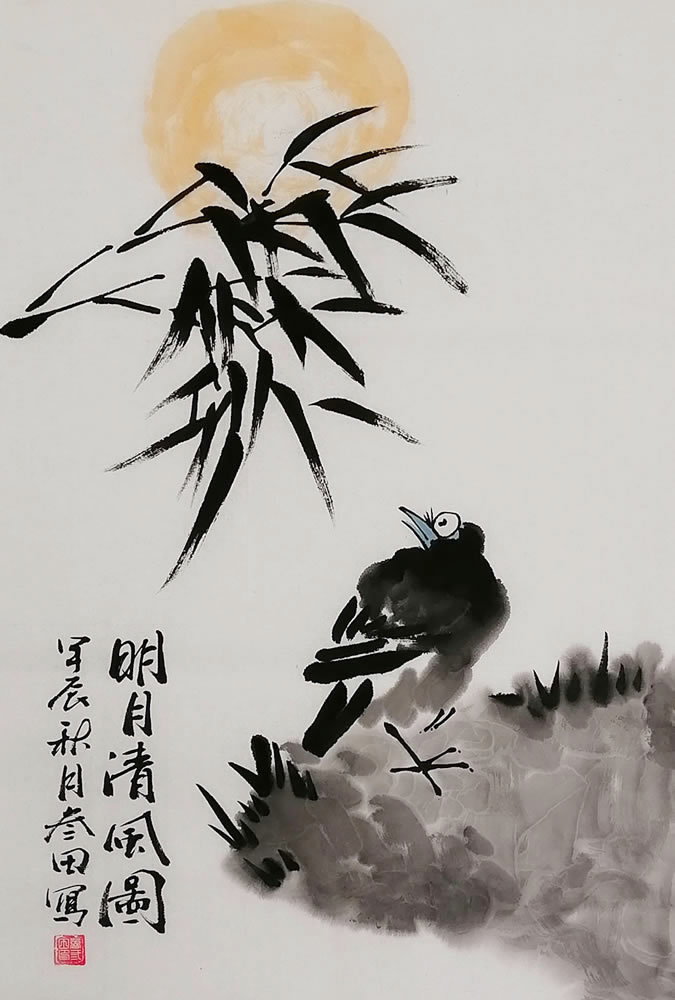 明月清风圖
甲辰秋月叁田寫